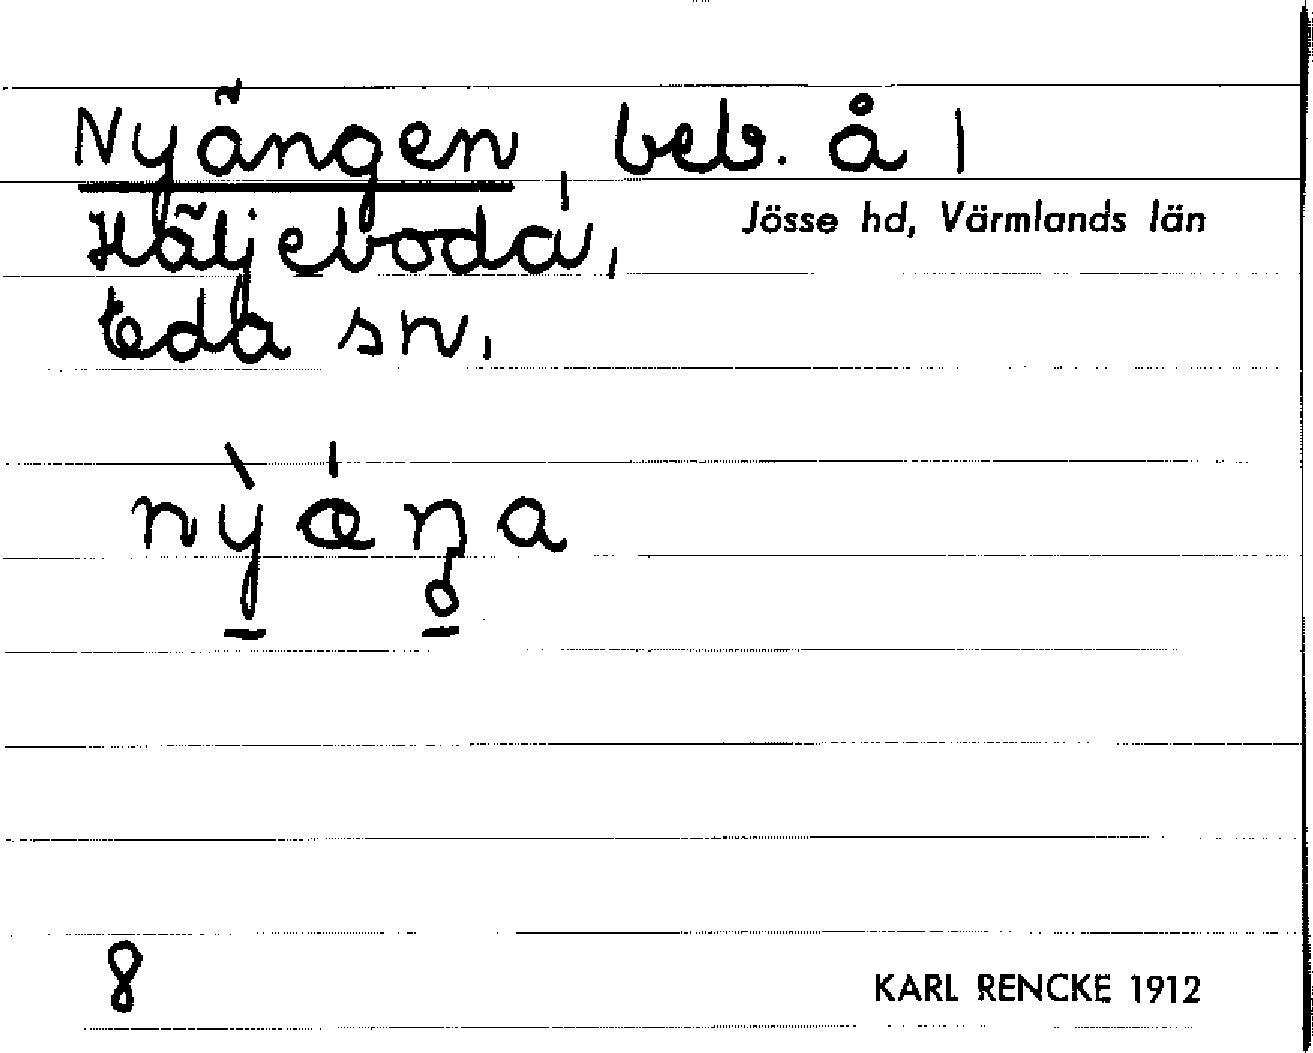 Nyängen, beb. å 1
Jösse hd, Värmlands län
Häljeboda,
Eda sn,
nỳæŋa
8
KARL RENCKE 1912